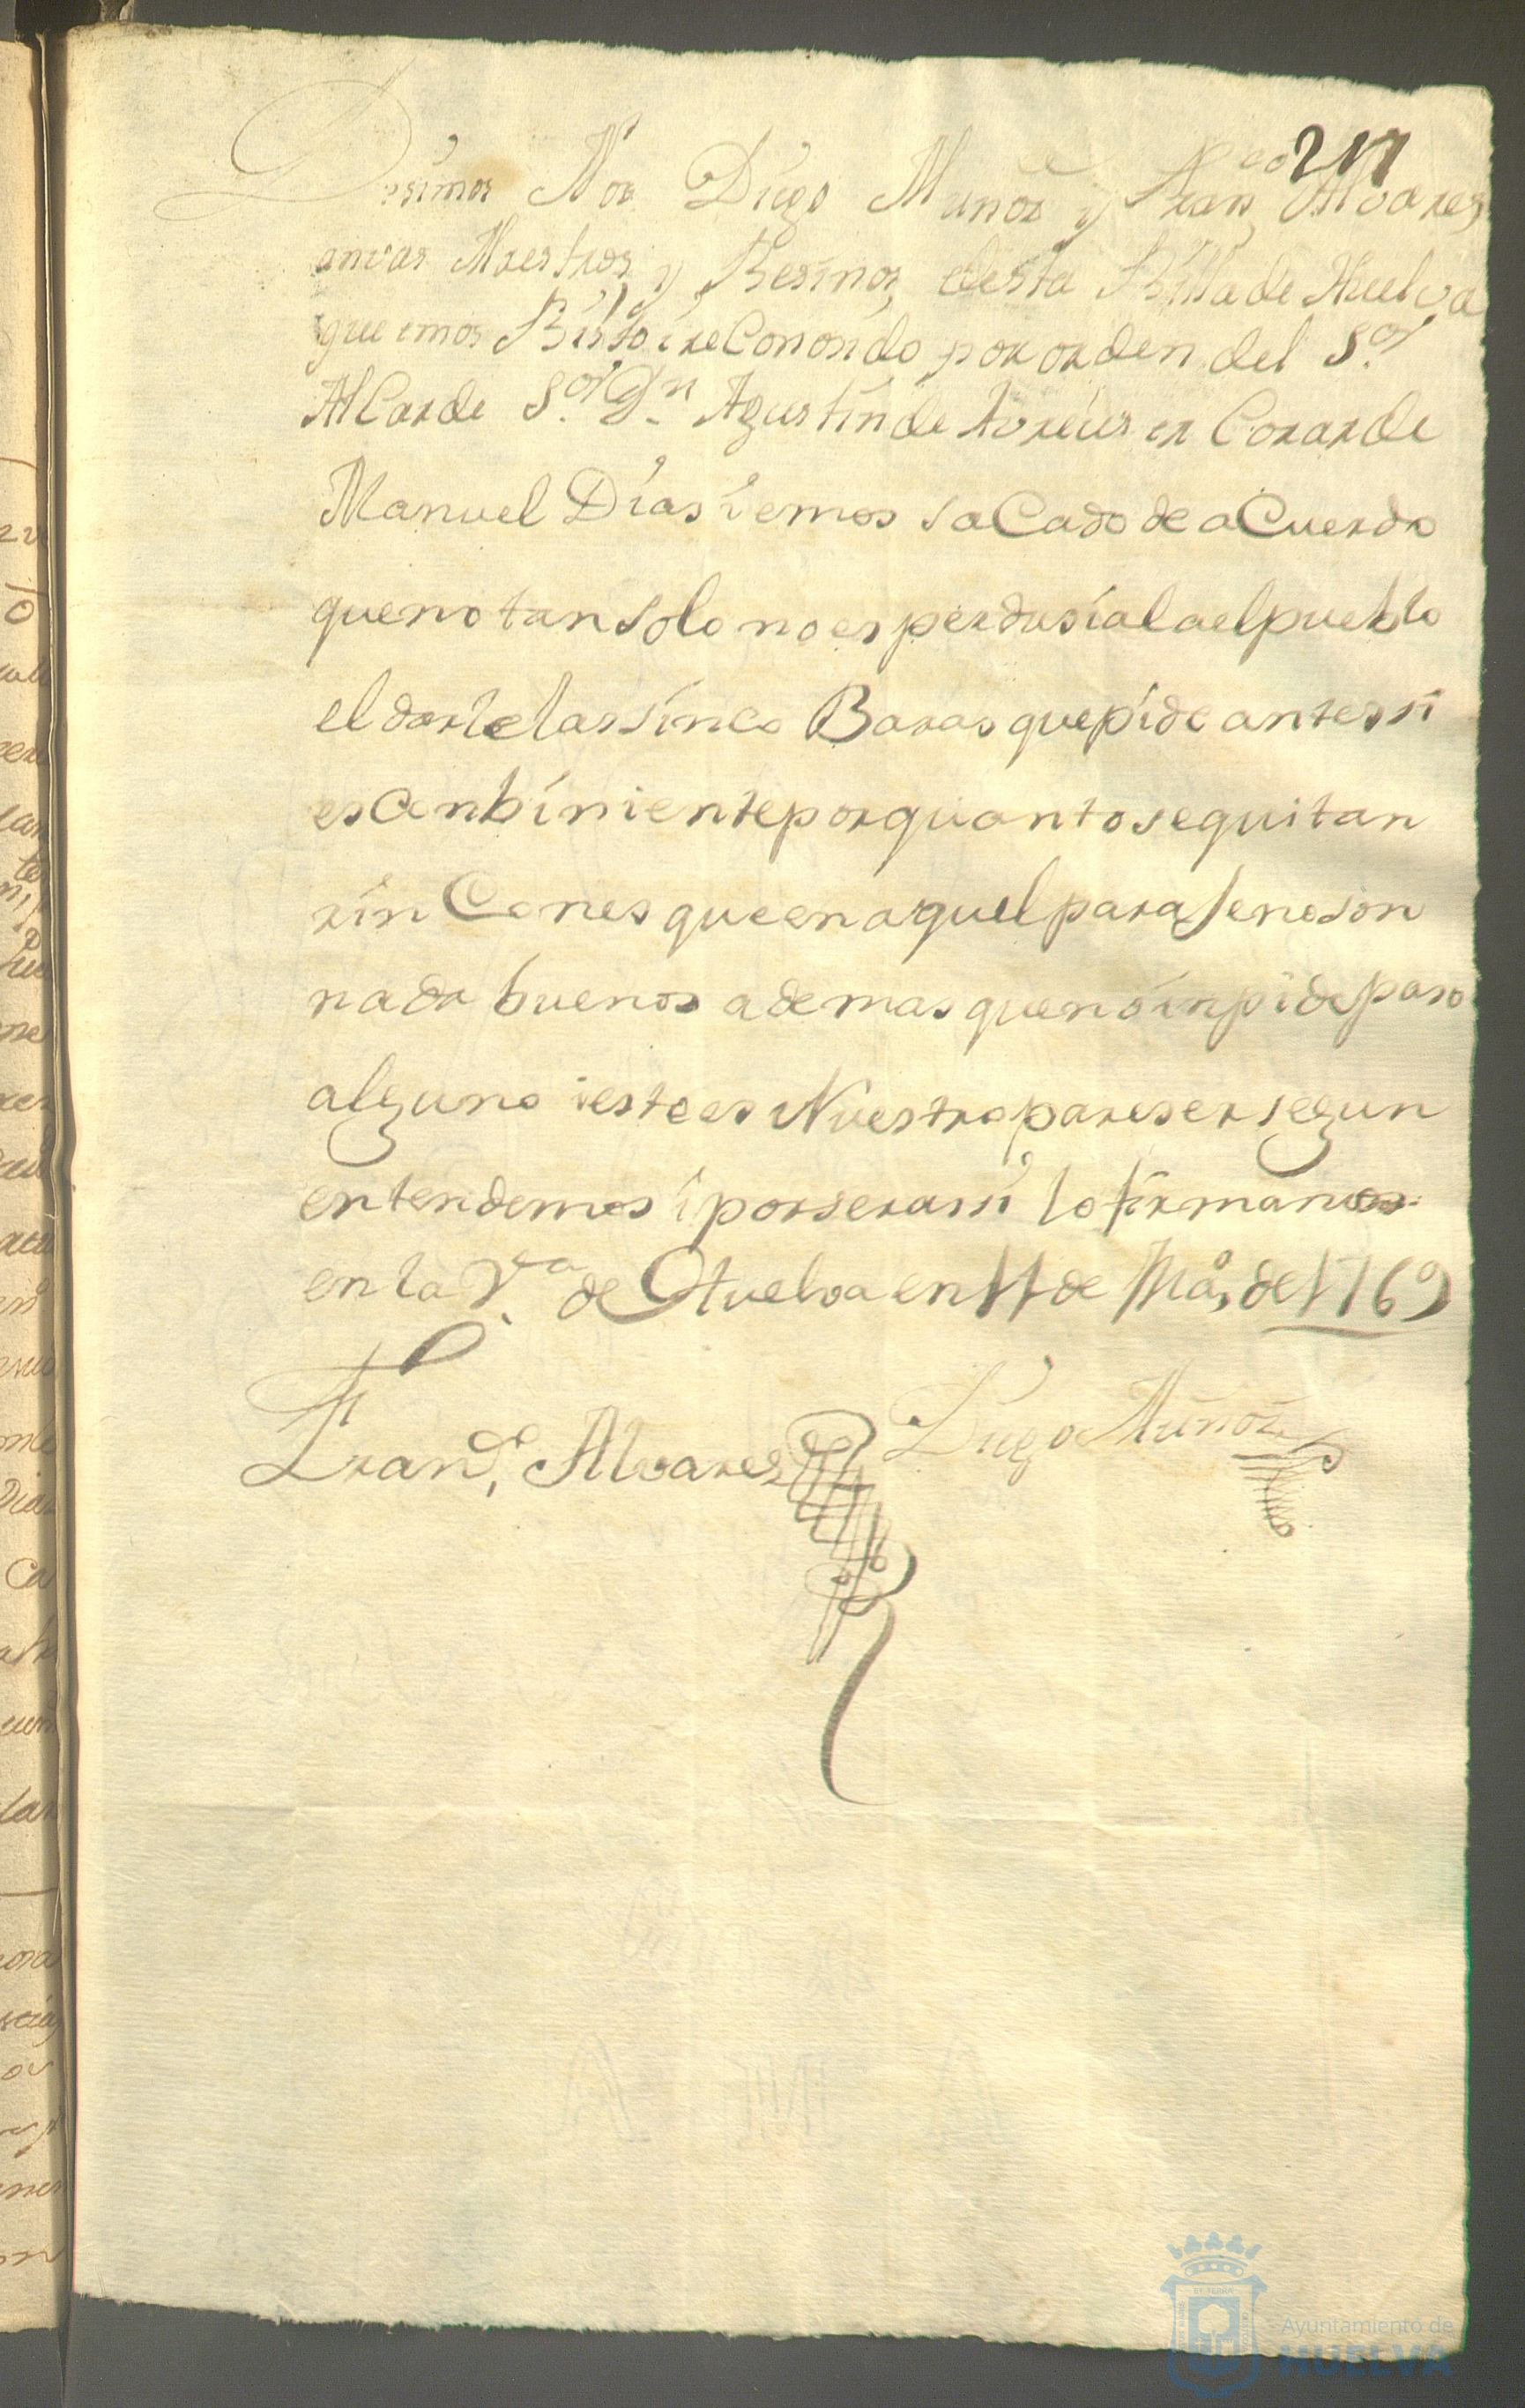 217
Desimos Nos Diego Muñoz y Franco Alvares
anvos Maestros y Besinos desta Billa de Huelva
que emos Bisto i reConosido por orden del Sor
AlCarde Sor Dn Agustin de Avreus er Corar de
Manuel Dias i emos saCado de aCuerdo
que no tan solo no es perdusial a el pueblo
el darle las sinco Baras que pide antes si
es Conbiniente por quanto se quitan
rinCones que en aquel paraSe no son
nada buenos ademas que no inpide paso
alguno i este es Nuestro pareser segun
entendemos i por ser assi lo firmamos
en la Va de Huelva en 11 de Mao de 1769
Franco Alvares Diego Muñoz
Ayuntamiento de
HUELVA